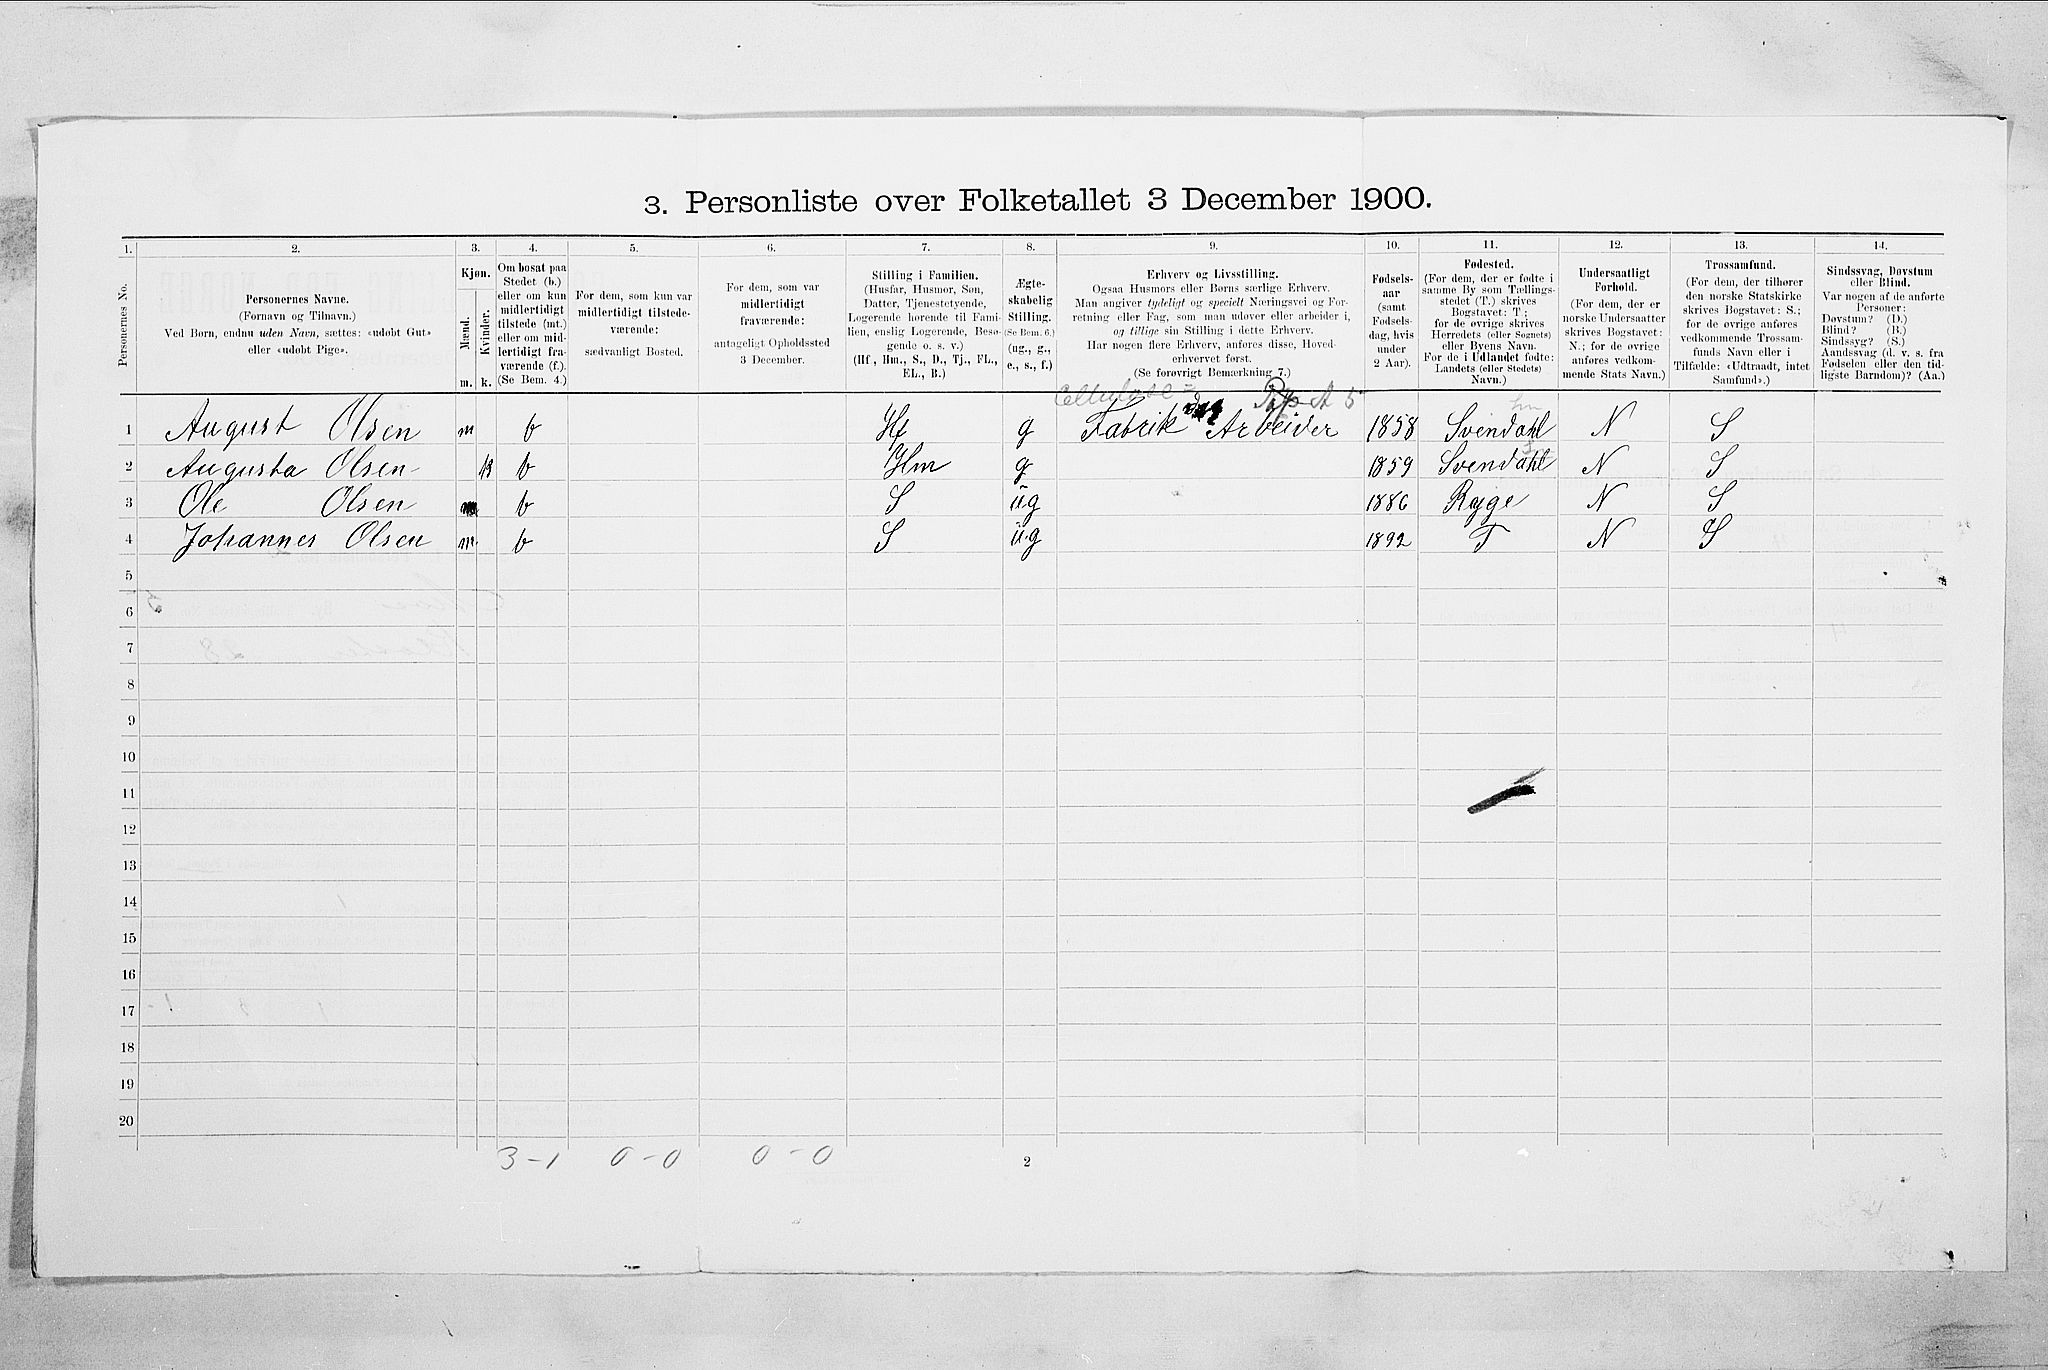 3. Personliste over Folketallet 3 December 1900.
1. 2. 3. 4. 5. 6. 7. 8. 9. 10. 11. 12. 13. 14.
Personernes No.
Personernes Navne.
(Fornavn og Tilnavn.)
Ved Børn, endnu uden Navn, sættes: «udøbt Gut»
eller «udøbt Pige».
Kjøn.
Mænd.
Kvinder.
m. k.
Om bosat paa
Stedet (b.)
eller om kun
midlertidigt
tilstede (mt.)
eller om mid-
lertidigt fra-
værende (f.).
(Se Bem. 4.)
For dem, som kun var
midlertidigt tilstede-
værende:
sædvanligt Bosted.
For dem, som var
midlertidigt
fraværende:
antageligt Opholdssted
3 December.
Stilling i Familien.
(Husfar, Husmor, Søn,
Datter, Tjenestetyende,
Logerende hørende til Fami-
lien, enslig Logerende, Besø-
gende o. s. v.)
(Hf., Hm., S., D., Tj., FL.,
EL., B.)
Ægte-
skabelig
Stilling.
(Se Bem. 6.)
(ug., g.,
e., s., f.)
Erhverv og Livsstilling.
Ogsaa Husmors eller Børns særlige Erhverv.
Man angiver tydeligt og specielt Næringsvei og For-
retning eller Fag, som man udøver eller arbeider i,
og tillige sin Stilling i dette Erhverv.
Har nogen flere Erhverv, anføres disse, Hoved-
erhvervet først.
(Se forøvrigt Bemærkning 7.)
Fødsels-
aar
(samt
Fødsels-
dag, hvis
under
2 Aar).
Fødested.
(For dem, der er fødte i
samme By som Tællings-
stedet (T.) skrives
Bogstavet: T;
for de øvrige skrives
Herredets (eller Sognets)
eller Byens Navn.
For de i Udlandet fødte:
Landets (eller Stedets)
Navn.)
Undersaatligt
Forhold.
(For dem, der er
norske Undersaatter
skrives Bogstavet:
N.; for de øvrige
anføres vedkom-
mende Stats Navn.)
Trossamfund.
(For dem, der tilhører
den norske Statskirke
skrives Bogstavet: S.;
for de øvrige anføres
vedkommende Trossam-
funds Navn eller i
Tilfælde: «Udtraadt, intet
Samfund».)
Sindssvag, Døvstum
eller Blind.
Var nogen af de anførte
Personer:
Døvstum? (D.)
Blind? (B.)
Sindssyg? (S.)
Aandssvag (d. v. s. fra
Fødselen eller den tid-
ligste Barndom)? (Aa.)
Cellulose
1 August Olsen m b Hf g Fabrik Arbeider 1858 Svendahl N S
2 Augusta Olsen k b Hm g 1859 Svendahl N S
3 Ole Olsen m b S ug 1886 Rygge N S
4 Johannes Olsen m b S ug 1892 T N S
5
6
7
8
9
10
11
12
13
14
15
16
17
18
19
20
3-1 0-0 0-0
2